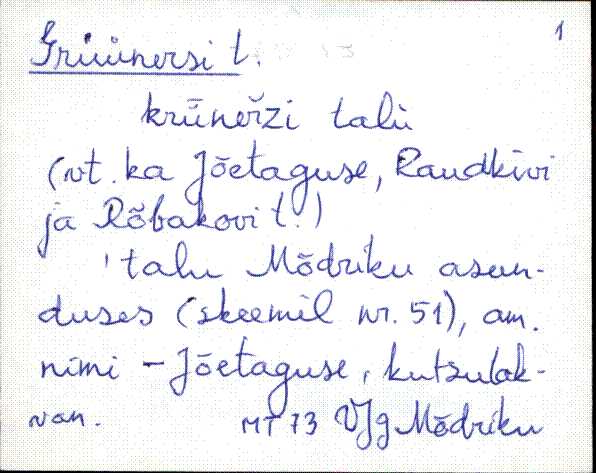 1
Grüünersi t.
krünerži talu
(vt. ka Jõetaguse, Raudkivi
ja Rõbakovi t.)
'talu Mõdriku asun-
duses (skeemil nr. 51), am.
nimi - Jõetaguse, kutsutak-
van. MT 73 VJg Mõdriku